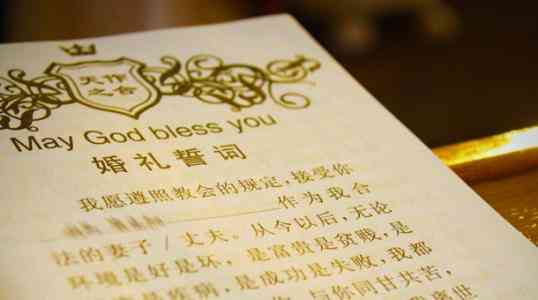 天作
之合
May God bless you
婚礼誓词
我愿遵照教会的规定,接受你
作为我合
法的妻子/丈夫、从今以后,无论
环境是好是坏,是富贵是贫贱,是
是疾病,是成功是失败,我都
与你同甘共苦,
离世